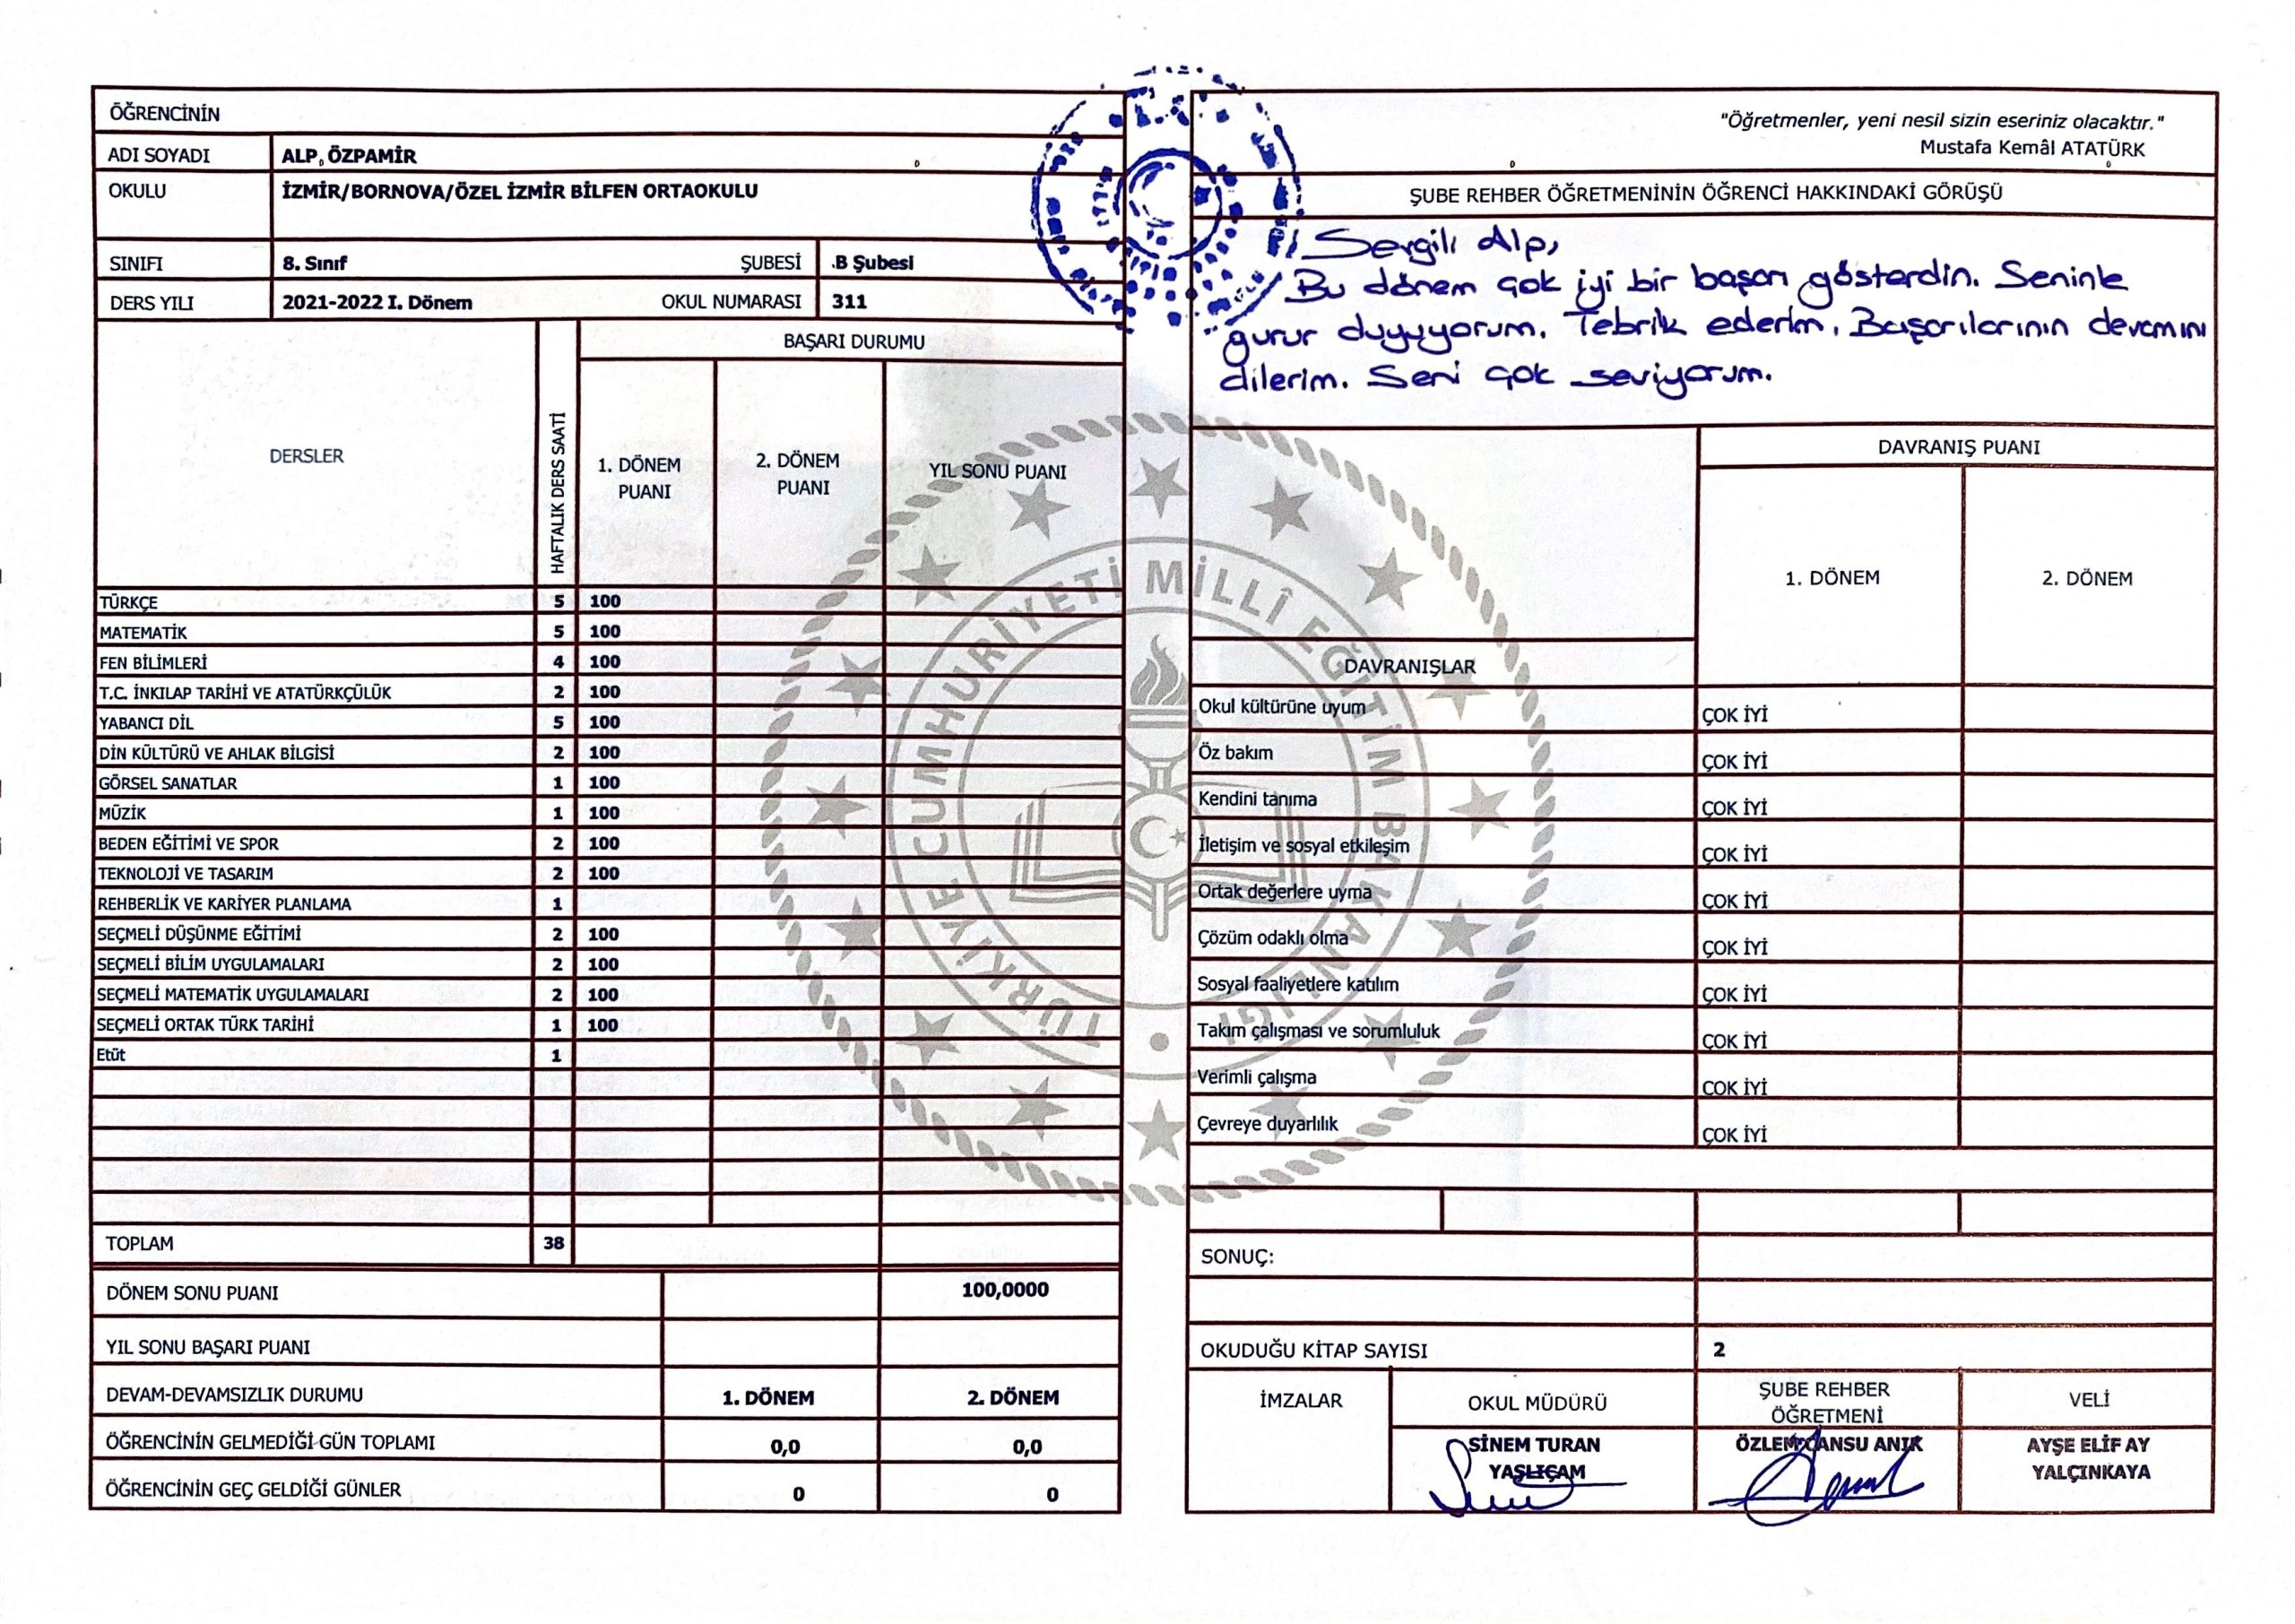 ÖĞRENCİNİN
ADI SOYADI ALP ÖZPAMİR
OKULU İZMİR/BORNOVA/ÖZEL İZMİR BİLFEN ORTAOKULU
SINIFI 8. Sınıf ŞUBESİ B Şubesi
DERS YILI 2021-2022 I. Dönem OKUL NUMARASI 311
BAŞARI DURUMU
DERSLER
HAFTALIK DERS SAATİ
1. DÖNEM
PUANI
2. DÖNEM
PUANI
YIL SONU PUANI
TÜRKÇE 5 100
MATEMATİK 5 100
FEN BİLİMLERİ 4 100
T.C. İNKILAP TARİHİ VE ATATÜRKÇÜLÜK 2 100
YABANCI DİL 5 100
DİN KÜLTÜRÜ VE AHLAK BİLGİSİ 2 100
GÖRSEL SANATLAR 1 100
MÜZİK 1 100
BEDEN EĞİTİMİ VE SPOR 2 100
TEKNOLOJİ VE TASARIM 2 100
REHBERLİK VE KARİYER PLANLAMA 1
SEÇMELİ DÜŞÜNME EĞİTİMİ 2 100
SEÇMELİ BİLİM UYGULAMALARI 2 100
SEÇMELİ MATEMATİK UYGULAMALARI 2 100
SEÇMELİ ORTAK TÜRK TARİHİ 1 100
Etüt 1
TOPLAM 38
DÖNEM SONU PUANI 100,0000
YIL SONU BAŞARI PUANI
DEVAM-DEVAMSIZLIK DURUMU 1. DÖNEM 2. DÖNEM
ÖĞRENCİNİN GELMEDİĞİ GÜN TOPLAMI 0,0 0,0
ÖĞRENCİNİN GEÇ GELDİĞİ GÜNLER 0 0
"Öğretmenler, yeni nesil sizin eseriniz olacaktır."
Mustafa Kemâl ATATÜRK
ŞUBE REHBER ÖĞRETMENİNİN ÖĞRENCİ HAKKINDAKİ GÖRÜŞÜ
Sevgili Alp,
Bu dönem çok iyi bir başarı gösterdin. Seninle
gurur duyuyorum. Tebrik ederim. Başarılarının devamını
dilerim. Seni çok seviyorum.
DAVRANIŞ PUANI
1. DÖNEM 2. DÖNEM
DAVRANIŞLAR
Okul kültürüne uyum ÇOK İYİ
Öz bakım ÇOK İYİ
Kendini tanıma ÇOK İYİ
İletişim ve sosyal etkileşim ÇOK İYİ
Ortak değerlere uyma ÇOK İYİ
Çözüm odaklı olma ÇOK İYİ
Sosyal faaliyetlere katılım ÇOK İYİ
Takım çalışması ve sorumluluk ÇOK İYİ
Verimli çalışma ÇOK İYİ
Çevreye duyarlılık ÇOK İYİ
SONUÇ:
OKUDUĞU KİTAP SAYISI 2
İMZALAR
OKUL MÜDÜRÜ
SİNEM TURAN
YAŞLIÇAM
ŞUBE REHBER
ÖĞRETMENİ
ÖZLEM CANSU ANIK
VELİ
AYŞE ELİF AY
YALÇINKAYA
TÜRKİYE CUMHURİYETİ MİLLÎ EĞİTİM BAKANLIĞI